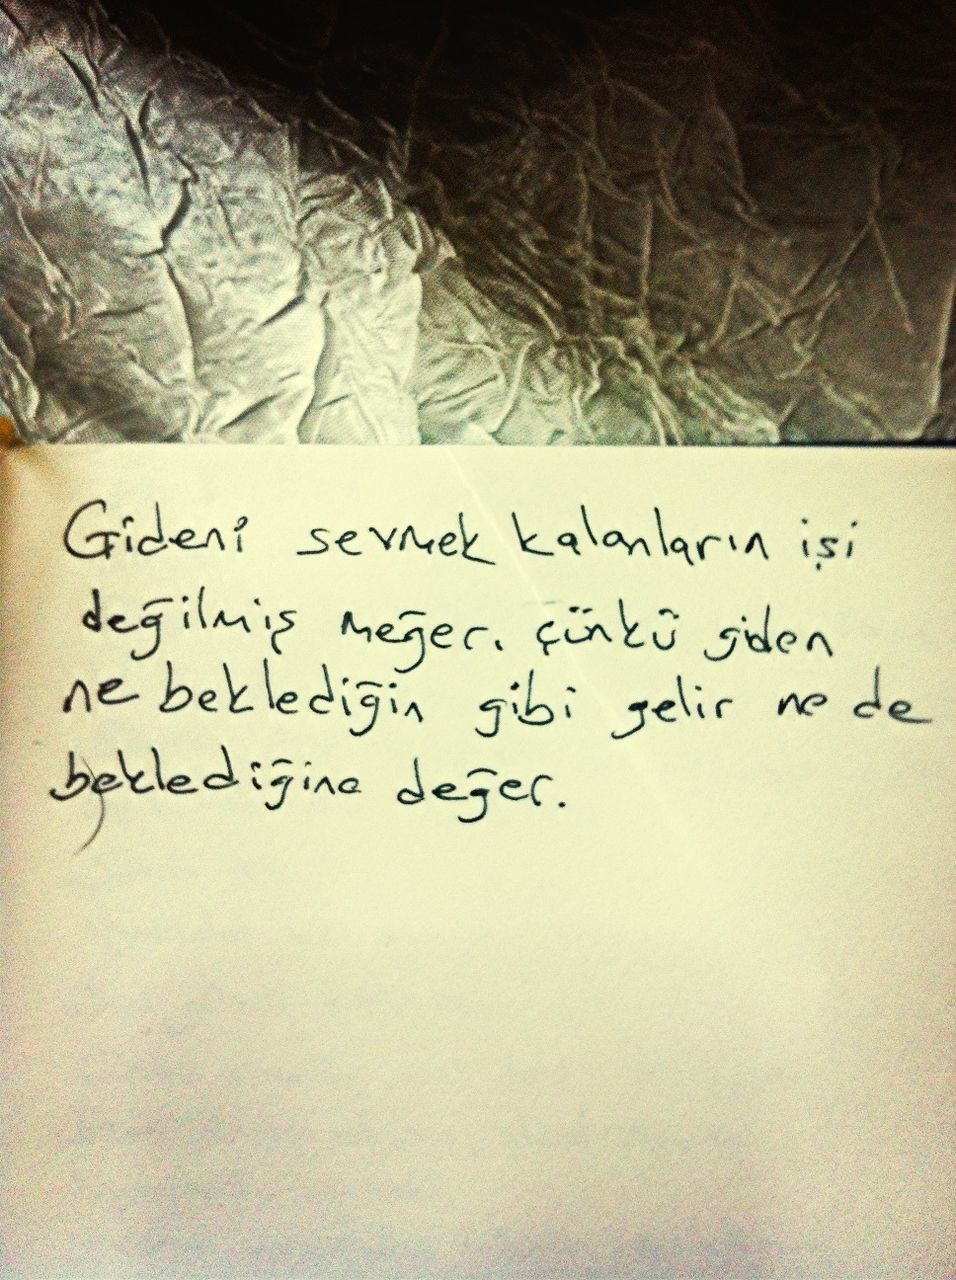 Gideni sevmek kalanların işi
değilmiş meğer. çünkü giden
ne beklediğin gibi gelir ne de
beklediğine değer.